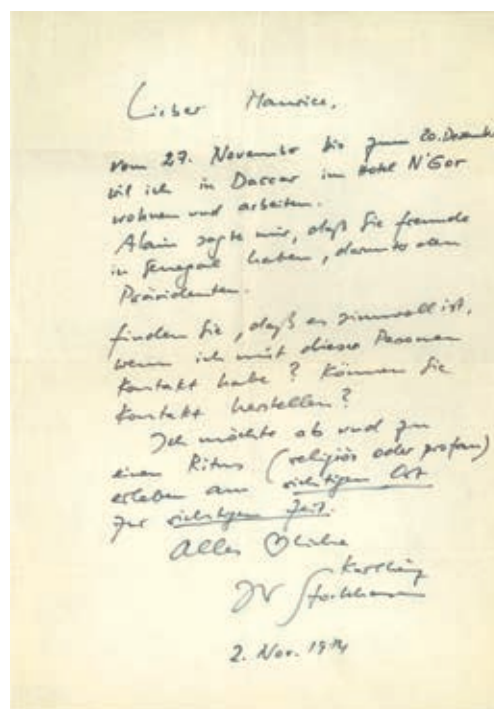 Lieber Maurice,
vom 27. November bis zum 20. Dezember
will ich in Daccar im Hotel N'Gor
wohnen und arbeiten.
Alain sagte mir, daß Sie Freunde
in Senegal haben, darunter den
Präsidenten.
Finden Sie, daß es sinnvoll ist,
wenn ich mit diesen Personen
Kontakt habe? Können Sie
Kontakt herstellen?
Ich möchte ab und zu
einen Ritus (religiös oder profan)
erleben am richtigen Ort
zur richtigen Zeit.
Alles ♡liche
Ihr Karlheinz
Stockhausen
2. Nov. 1974